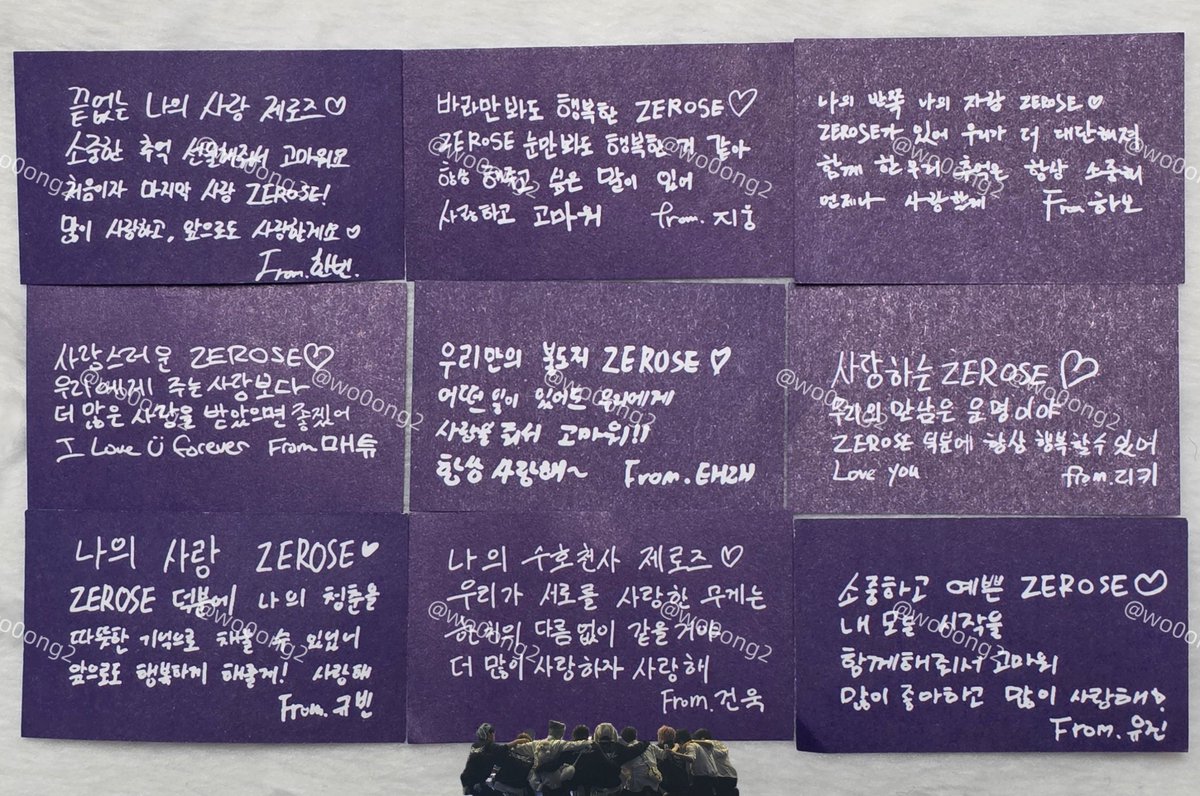 끝없는 나의 사랑 제로즈♡
소중한 추억 선물해줘서 고마워요
처음이자 마지막 사랑 ZEROSE!
많이 사랑하고, 앞으로도 사랑할게요♡
From.한빈.
바라만봐도 행복한 ZEROSE♡
ZEROSE 눈만봐도 행복한 거 같아
항상 해주고 싶은 말이 있어
사랑하고 고마워 from.지웅
나의 반쪽 나의 자랑 ZEROSE♡
ZEROSE가 있어 우리가 더 대단해져
함께 한 우리 추억은 항상 소중히
언제나 사랑할게 From하오
사랑스러운 ZEROSE♡
우리에게 주는 사랑보다
더 많은 사랑을 받았으면 좋겠어
I Love Ü forever From매튜
우리만의 ZEROSE♡
어떤 일이 있어도 우리에게
사랑을 줘서 고마워!!
항상 사랑해~ From.태래
사랑하는 ZEROSE♡
우리의 만남은 운명이야
ZEROSE 덕분에 항상 행복할수있어
Love you from.리키
나의 사랑 ZEROSE♥
ZEROSE 덕분에 나의 청춘을
따뜻한 기억으로 채울 수 있었어
앞으로도 행복하게 해줄게! 사랑해
From.규빈
나의 수호천사 제로즈♡
우리가 서로를 사랑한 무게는
한치의 다름없이 같을거야
더 많이 사랑하자 사랑해
From.건욱
소중하고 예쁜 ZEROSE♡
내 모든 시작을
함께해줘서 고마워
많이 좋아하고 많이 사랑해!
From.유진
@wo0ong2